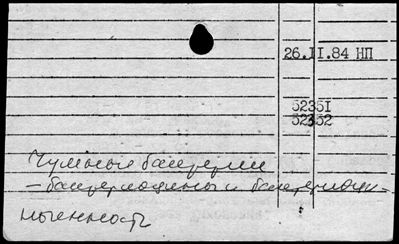 26.II.84 НП
52351
52352
Чумные бактерии
- бактериоцины и бактериоци-
ногенность